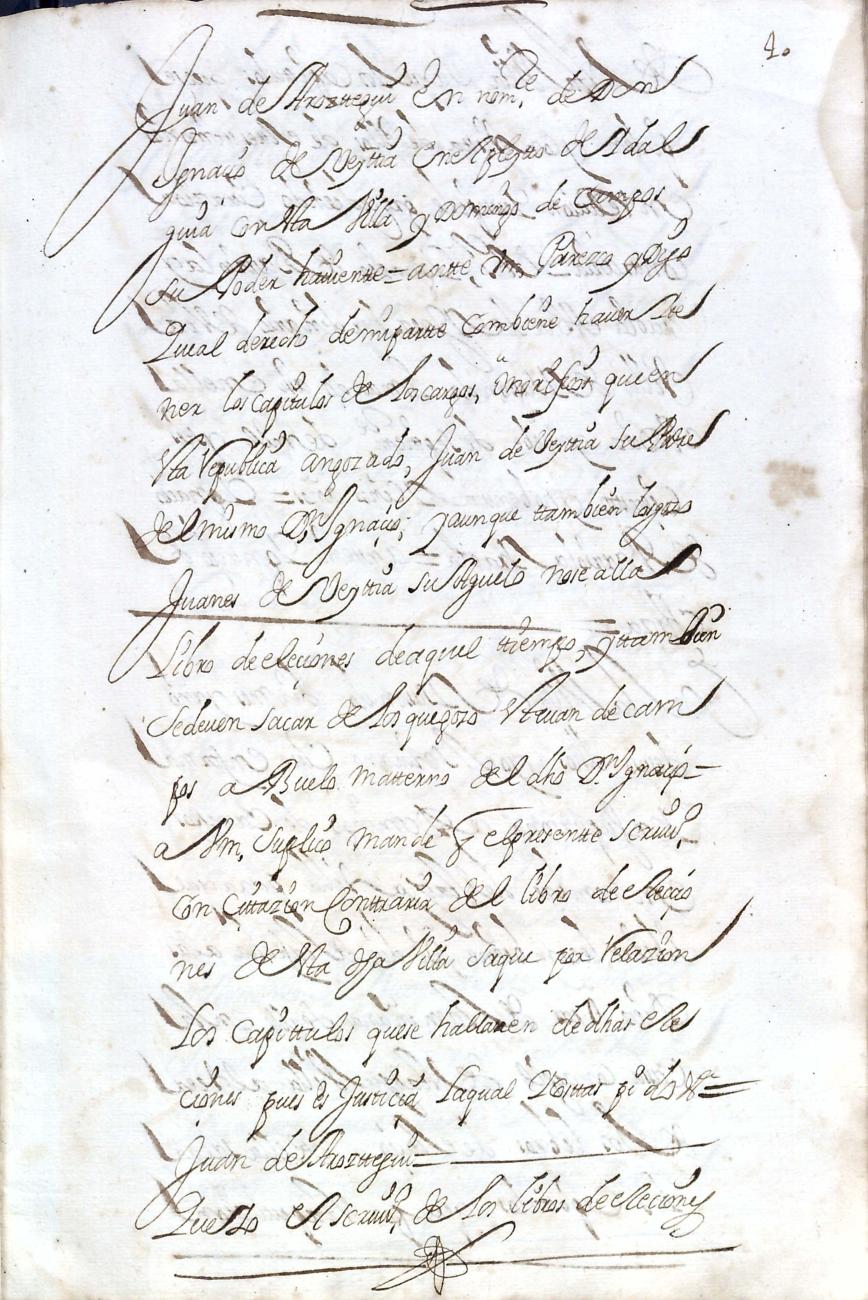 4.
Juan de Arozttegui En nom.e de Don
Ignacio de Veytia En el pleyto de Ydal
guia con esta Villa y Domingo de Campos
su Poder haviente = antte Vm, Parezco y Dijo
Que al derecho de mi partte combiene haver Ste
ner los capitulos de los cargos, onorificos que en
esta Republica an gozado, Juan de Veytia su Padre
del mismo Dn. Ignacio, y aunque ttambien lo gozo
Juanes de Veyttia su Aguelo no se alla
Libro de eleciones de aquel ttiempo, y ttambien
Se deven sacar de los que gozo Estevan de cam
pos a Buelo matterno del dho Dn. Ignacio =
a Vm, Suplico mande q el presentte scrivo.
con Cittazion Conttraria del libro de Elecio
nes de esta dha Villa saque por Relazion
Los Capittulos que se hablaren de dhas Ele
ciones pues es Justicia laqual Costtas pido &a =
Juan de Arozttegui =
Que el scrivo. de los libros de eleciones